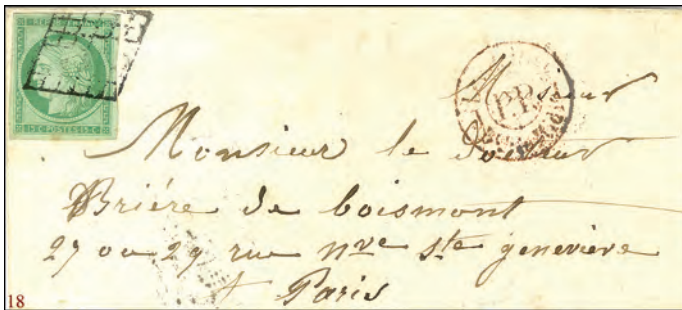 15 C · POSTES · 15 C
P.P.
Monsieur
Monsieur le Docteur
Brière de boismont
27 ou 29 rue nve ste geneviève
Paris
18